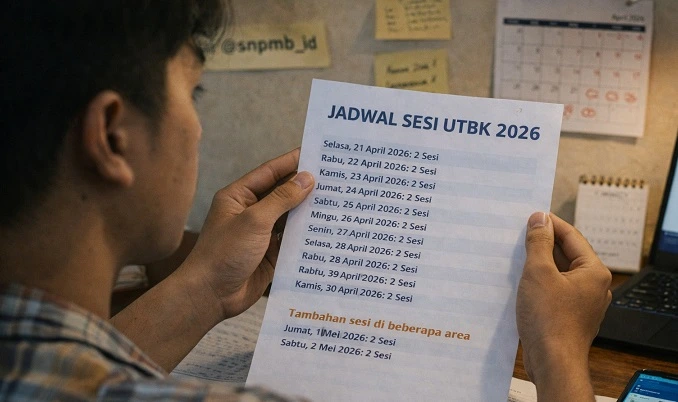 @snpmb_id
April 2026
JADWAL SESI UTBK 2026
Selasa, 21 April 2026: 2 Sesi
Rabu, 22 April 2026: 2 Sesi
Kamis, 23 April 2026: 2 Sesi
Jumat, 24 April 2026: 2 Sesi
Sabtu, 25 April 2026: 2 Sesi
Mingu, 26 April 2026: 2 Sesi
Senin, 27 April 2026: 2 Sesi
Selasa, 28 April 2026: 2 Sesi
Rabu, 28 April 2026: 2 Sesi
Rabtu, 39 April 2026: 2 Sesi
Kamis, 30 April 2026: 2 Sesi
Tambahan sesi di beberapa area
Jumat, 1 Mei 2026: 2 Sesi
Sabtu, 2 Mei 2026: 2 Sesi